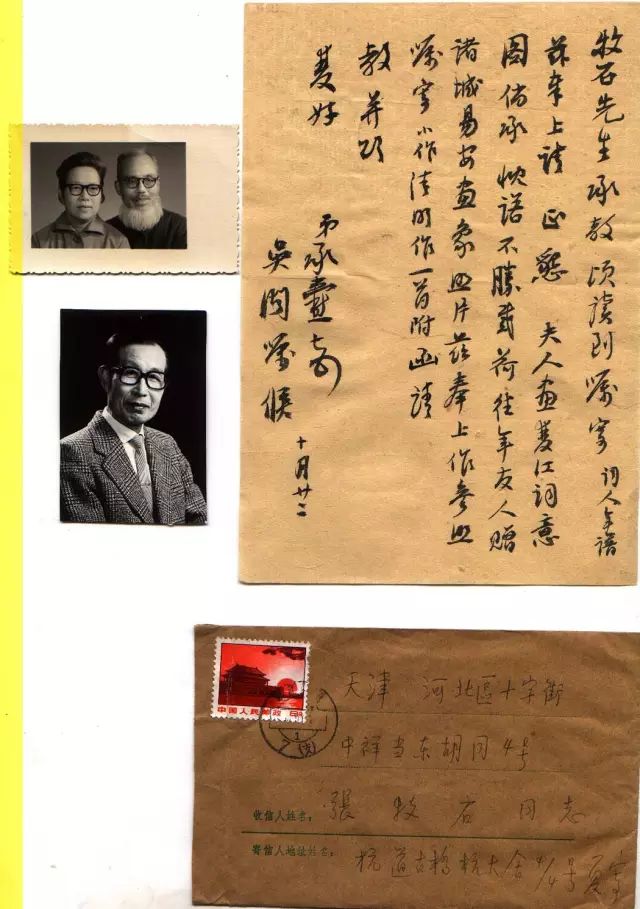 牧石先生承教頃讀到囑寫詞人年譜
茲奉上請 正 懇 夫人畫 江詞意
圖倘承 慨諾不勝 荷往年友人贈
諸城易安畫象照片茲奉上作參照
囑寫小作清明作一首附函請
教并頌
雙好
弟承燾上
吳聞囑候 十月廿二
中国人民邮政 8分
天津 河北區十字街
中祥当东胡同4号
收信人姓名: 張牧石同志
寄信人地址姓名: 杭道古橋杭大舍4/4号夏寄